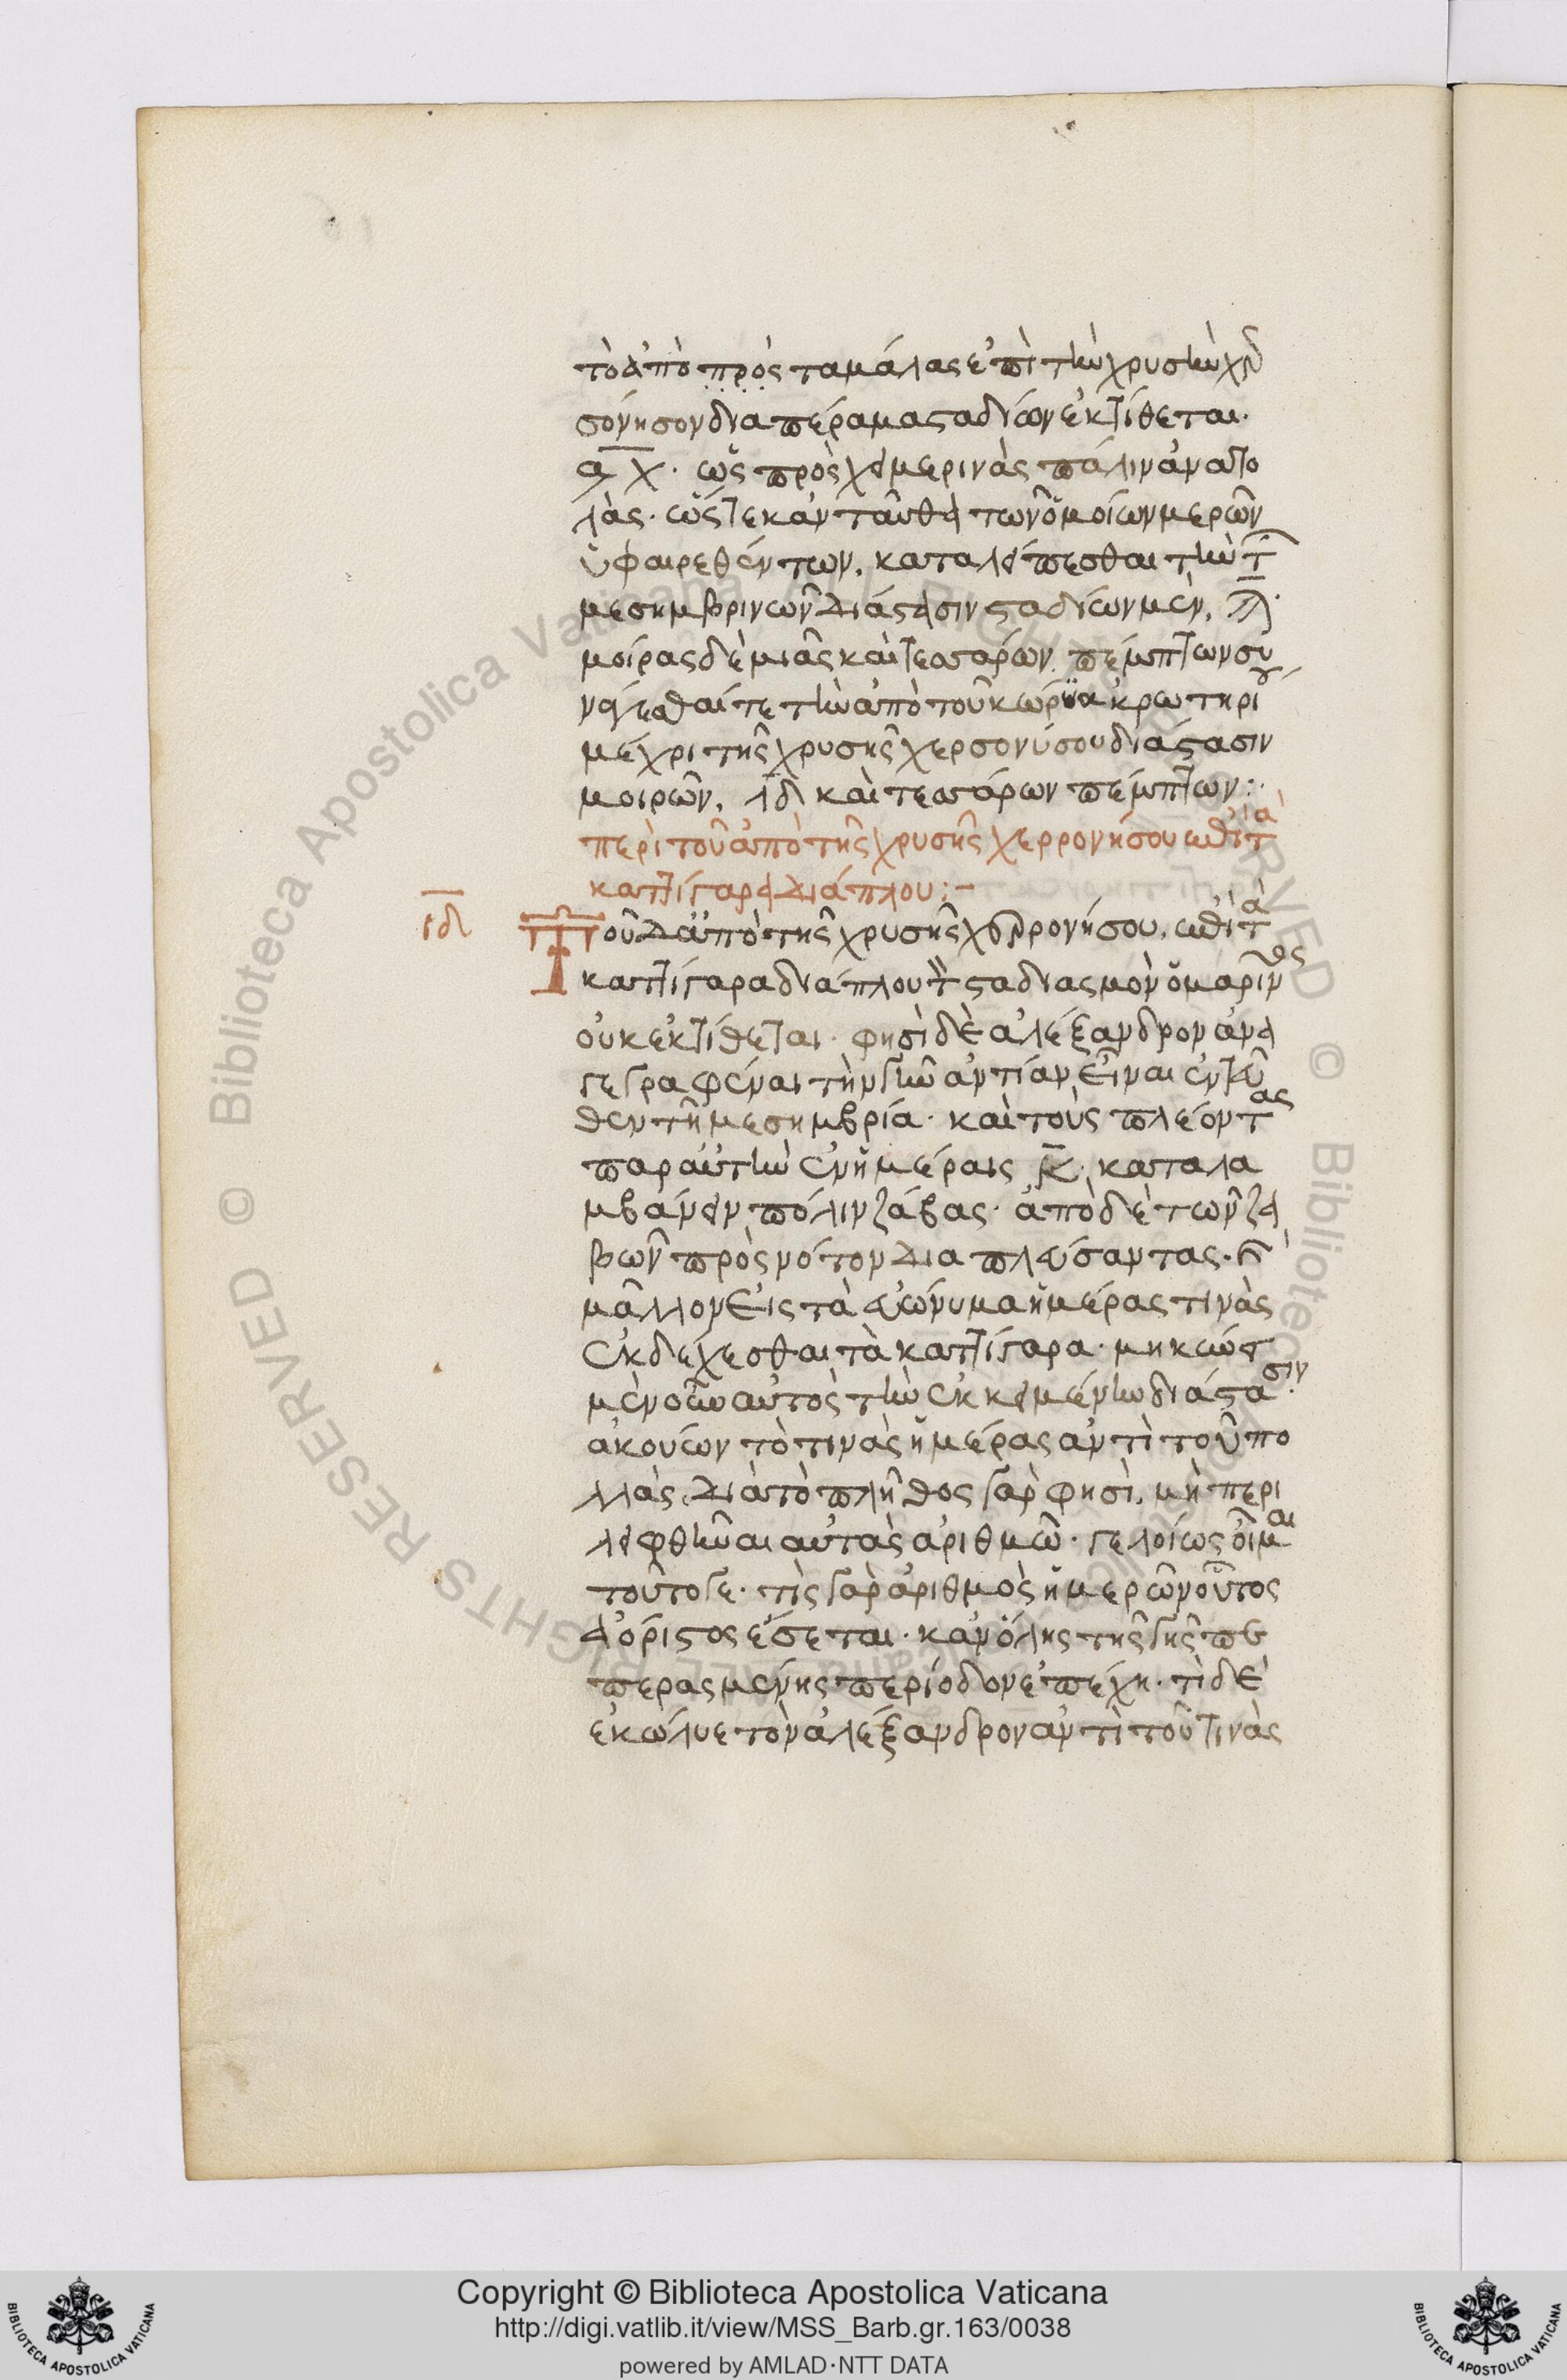 τὸ ἀπὸ πρὸς ταμάλας ἐπὶ τὴν χρυσὴν χερ
σόνησον διαπέραμα σταδίων ἐκτίθεται.
͵αχ. ὡς πρὸς χειμερινὰς πάλιν ἀνατο
λὰς. ὥστε κἀνταῦθα τῶν ὁμοίων μερῶν
ὑφαιρεθέντων, καταλείπεσθαι τὴν τ
μεσημβρινῶν διάστασιν σταδίων μὲν,
μοίρας δὲ μιᾶς καὶ τεσσάρων πέμπτων συ
νάγεσθαί τε τὴν ἀπὸ τοῦ κώρυ ἀκρωτηρίου
μέχρι τῆς χρυσῆς χερσονήσου διάστασιν
μοιρῶν, λδ καὶ τεσσάρων πέμπτων:·
περὶ τοῦ ἀπὸ τῆς χρυσῆς χερρονήσου ἐπὶ τὰ
καττίγαρα διάπλου:–
ιδ
Τοῦ δ' ἀπὸ τῆς χρυσῆς χερρονήσου, ἐπὶ τὰ
καττίγαρα διάπλου τ σταδιασμὸν ὁ μαρῖνος
οὐκ ἐκτίθεται. φησὶ δὲ ἀλέξανδρον ἀνα
γεγραφέναι τὴν γῆν ἀντίαν εἶναι ἐντεῦ
θεν τῇ μεσημβρία. καὶ τοὺς πλέοντας
παρ' αὐτὴν ἐν ἡμέραις κ. καταλα
μβάνειν πόλιν ζάβας. ἀπὸ δὲ τῶν ζα
βῶν πρὸς νότον διαπλεύσαντας. καὶ
μᾶλλον εἰς τὰ εὐώνυμα ἡμέρας τινὰς
ἐκδέχεσθαι τὰ καττίγαρα. μηκύνει
μὲν οὖν αὐτὸς τὴν ἐκκειμένην διάστασιν.
ἀκούων τὸ τινὰς ἡμέρας ἀντὶ τοῦ πο
λλάς. διὰ τὸ πλῆθος γὰρ φησὶ, μὴ περι
λειφθῆναι αὐτὰς ἀριθμῶ. γελοίως οἶμαι
τοῦτο γε. τίς γὰρ ἀριθμὸς ἡμερῶν οὗτος
ἀόριστος ἔσεται. κἂν ὅλης τῆς γῆς πε
περασμένης περίοδον ἐπέχῃ. τί δὲ
ἐκώλυε τὸν ἀλέξανδρον ἀντὶ τοῦ τινὰς
Copyright © Biblioteca Apostolica Vaticana
http://digi.vatlib.it/view/MSS_Barb.gr.163/0038
powered by AMLAD·NTT DATA